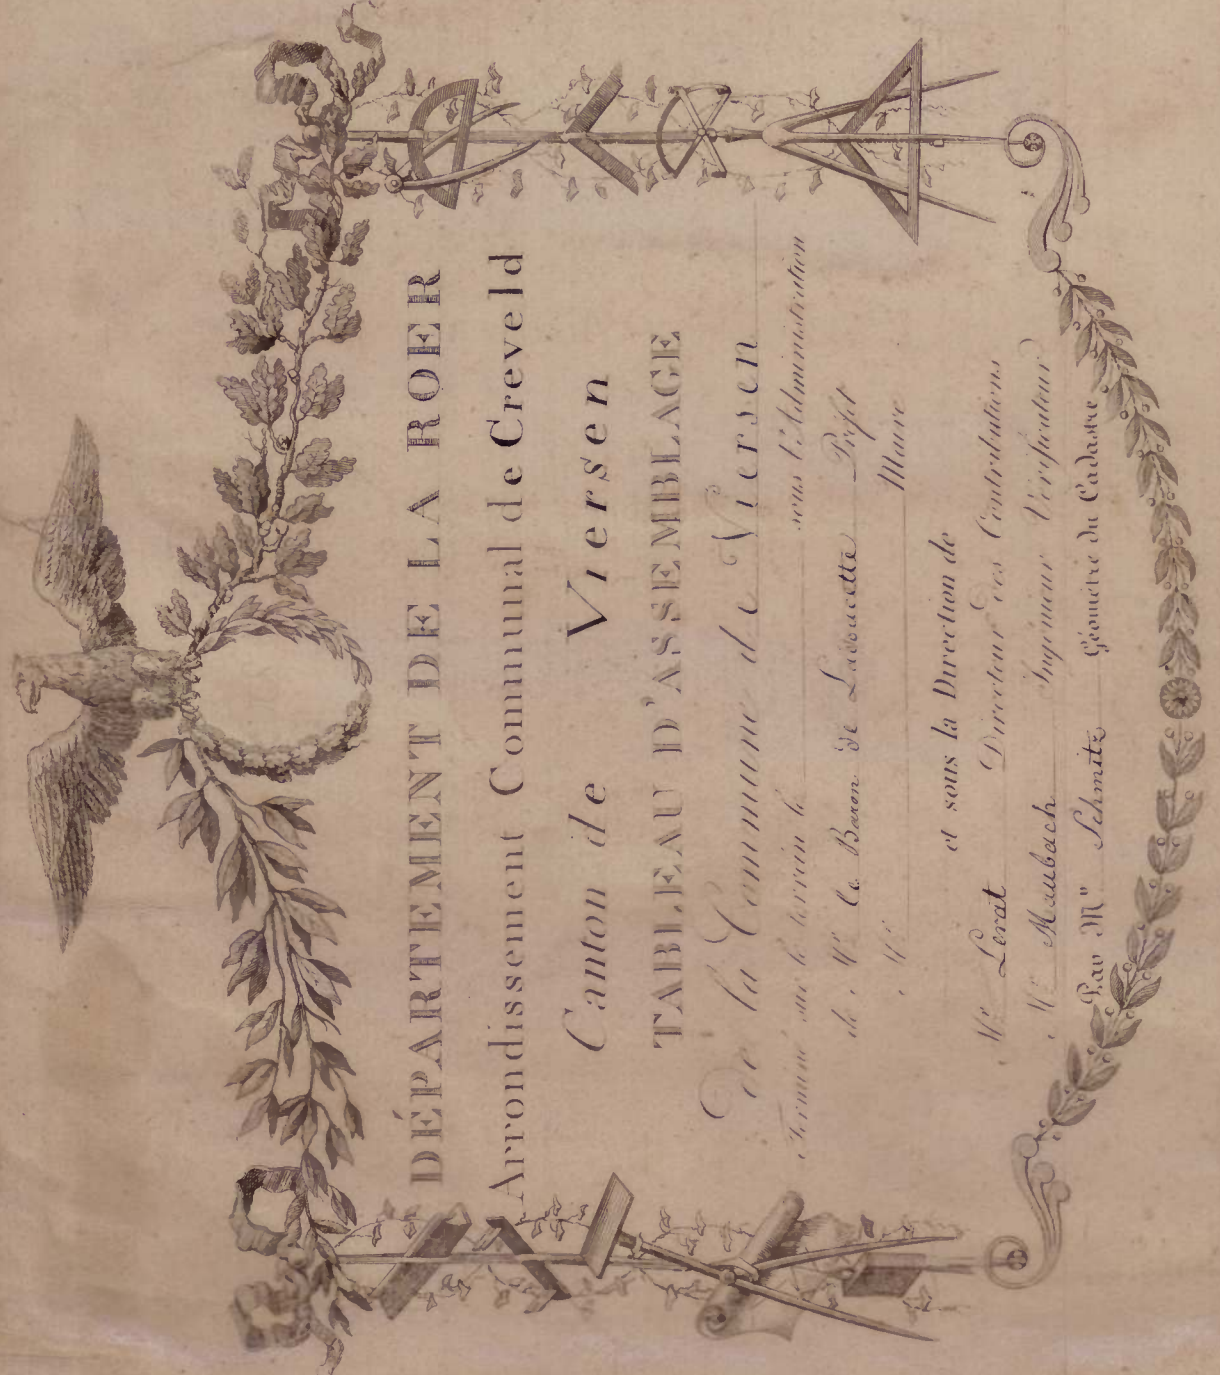 DÉPARTEMENT DE LA ROER
Arrondissement Communal de Creveld
Canton de Viersen
TABLEAU D'ASSEMBLAGE
De la Commune de Viersen
Terminé sur le terrein le sous l'Administration
de Mr. le Baron de Ladoucette Préfet
Mr. Maire
et sous la Direction de
Mr. Lerat Directeur des Contributions
Mr. Maubach Ingénieur Vérificateur
Par Mr. Schmitz Géomètre du Cadastre